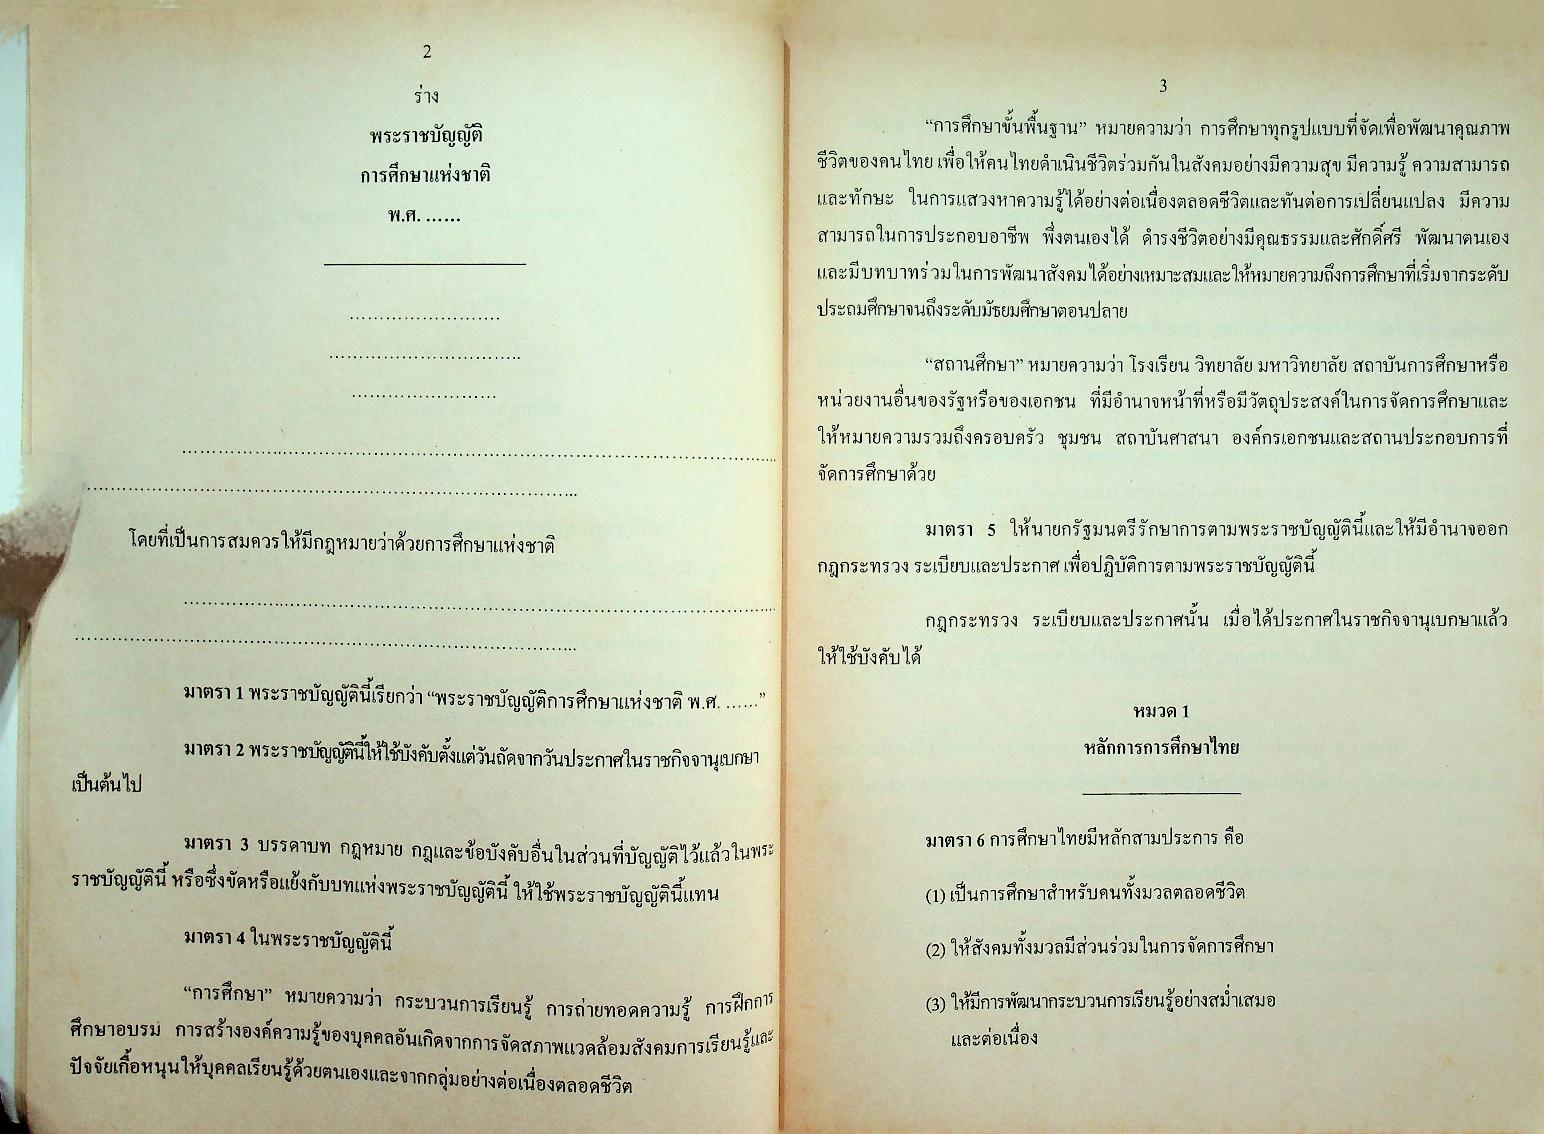 2
ร่าง
พระราชบัญญัติ
การศึกษาแห่งชาติ
พ.ศ. ......
........................
...............................
........................
....................................................................................................
................................................................................
โดยที่เป็นการสมควรให้มีกฎหมายว่าด้วยการศึกษาแห่งชาติ
....................................................................................................
................................................................................
มาตรา 1 พระราชบัญญัตินี้เรียกว่า “พระราชบัญญัติการศึกษาแห่งชาติ พ.ศ. ......”
มาตรา 2 พระราชบัญญัตินี้ให้ใช้บังคับตั้งแต่วันถัดจากวันประกาศในราชกิจจานุเบกษา
เป็นต้นไป
มาตรา 3 บรรดาบท กฎหมาย กฎและข้อบังคับอื่นในส่วนที่บัญญัติไว้แล้วในพระ
ราชบัญญัตินี้ หรือซึ่งขัดหรือแย้งกับบทแห่งพระราชบัญญัตินี้ ให้ใช้พระราชบัญญัตินี้แทน
มาตรา 4 ในพระราชบัญญัตินี้
“การศึกษา” หมายความว่า กระบวนการเรียนรู้ การถ่ายทอดความรู้ การฝึกการ
ศึกษาอบรม การสร้างองค์ความรู้ของบุคคลอันเกิดจากการจัดสภาพแวดล้อมสังคมการเรียนรู้และ
ปัจจัยเกื้อหนุนให้บุคคลเรียนรู้ด้วยตนเองและจากกลุ่มอย่างต่อเนื่องตลอดชีวิต
3
“การศึกษาขั้นพื้นฐาน” หมายความว่า การศึกษาทุกรูปแบบที่จัดเพื่อพัฒนาคุณภาพ
ชีวิตของคนไทย เพื่อให้คนไทยดำเนินชีวิตร่วมกันในสังคมอย่างมีความสุข มีความรู้ ความสามารถ
และทักษะ ในการแสวงหาความรู้ได้อย่างต่อเนื่องตลอดชีวิตและทันต่อการเปลี่ยนแปลง มีความ
สามารถในการประกอบอาชีพ พึ่งตนเองได้ ดำรงชีวิตอย่างมีคุณธรรมและศักดิ์ศรี พัฒนาตนเอง
และมีบทบาทร่วมในการพัฒนาสังคมได้อย่างเหมาะสมและให้หมายความถึงการศึกษาที่เริ่มจากระดับ
ประถมศึกษาจนถึงระดับมัธยมศึกษาตอนปลาย
“สถานศึกษา” หมายความว่า โรงเรียน วิทยาลัย มหาวิทยาลัย สถาบันการศึกษาหรือ
หน่วยงานอื่นของรัฐหรือของเอกชน ที่มีอำนาจหน้าที่หรือมีวัตถุประสงค์ในการจัดการศึกษาและ
ให้หมายความรวมถึงครอบครัว ชุมชน สถาบันศาสนา องค์กรเอกชนและสถานประกอบการที่
จัดการศึกษาด้วย
มาตรา 5 ให้นายกรัฐมนตรีรักษาการตามพระราชบัญญัตินี้และให้มีอำนาจออก
กฎกระทรวง ระเบียบและประกาศ เพื่อปฏิบัติการตามพระราชบัญญัตินี้
กฎกระทรวง ระเบียบและประกาศนั้น เมื่อได้ประกาศในราชกิจจานุเบกษาแล้ว
ให้ใช้บังคับได้
หมวด 1
หลักการการศึกษาไทย
มาตรา 6 การศึกษาไทยมีหลักสามประการ คือ
(1) เป็นการศึกษาสำหรับคนทั้งมวลตลอดชีวิต
(2) ให้สังคมทั้งมวลมีส่วนร่วมในการจัดการศึกษา
(3) ให้มีการพัฒนากระบวนการเรียนรู้อย่างสม่ำเสมอ
และต่อเนื่อง